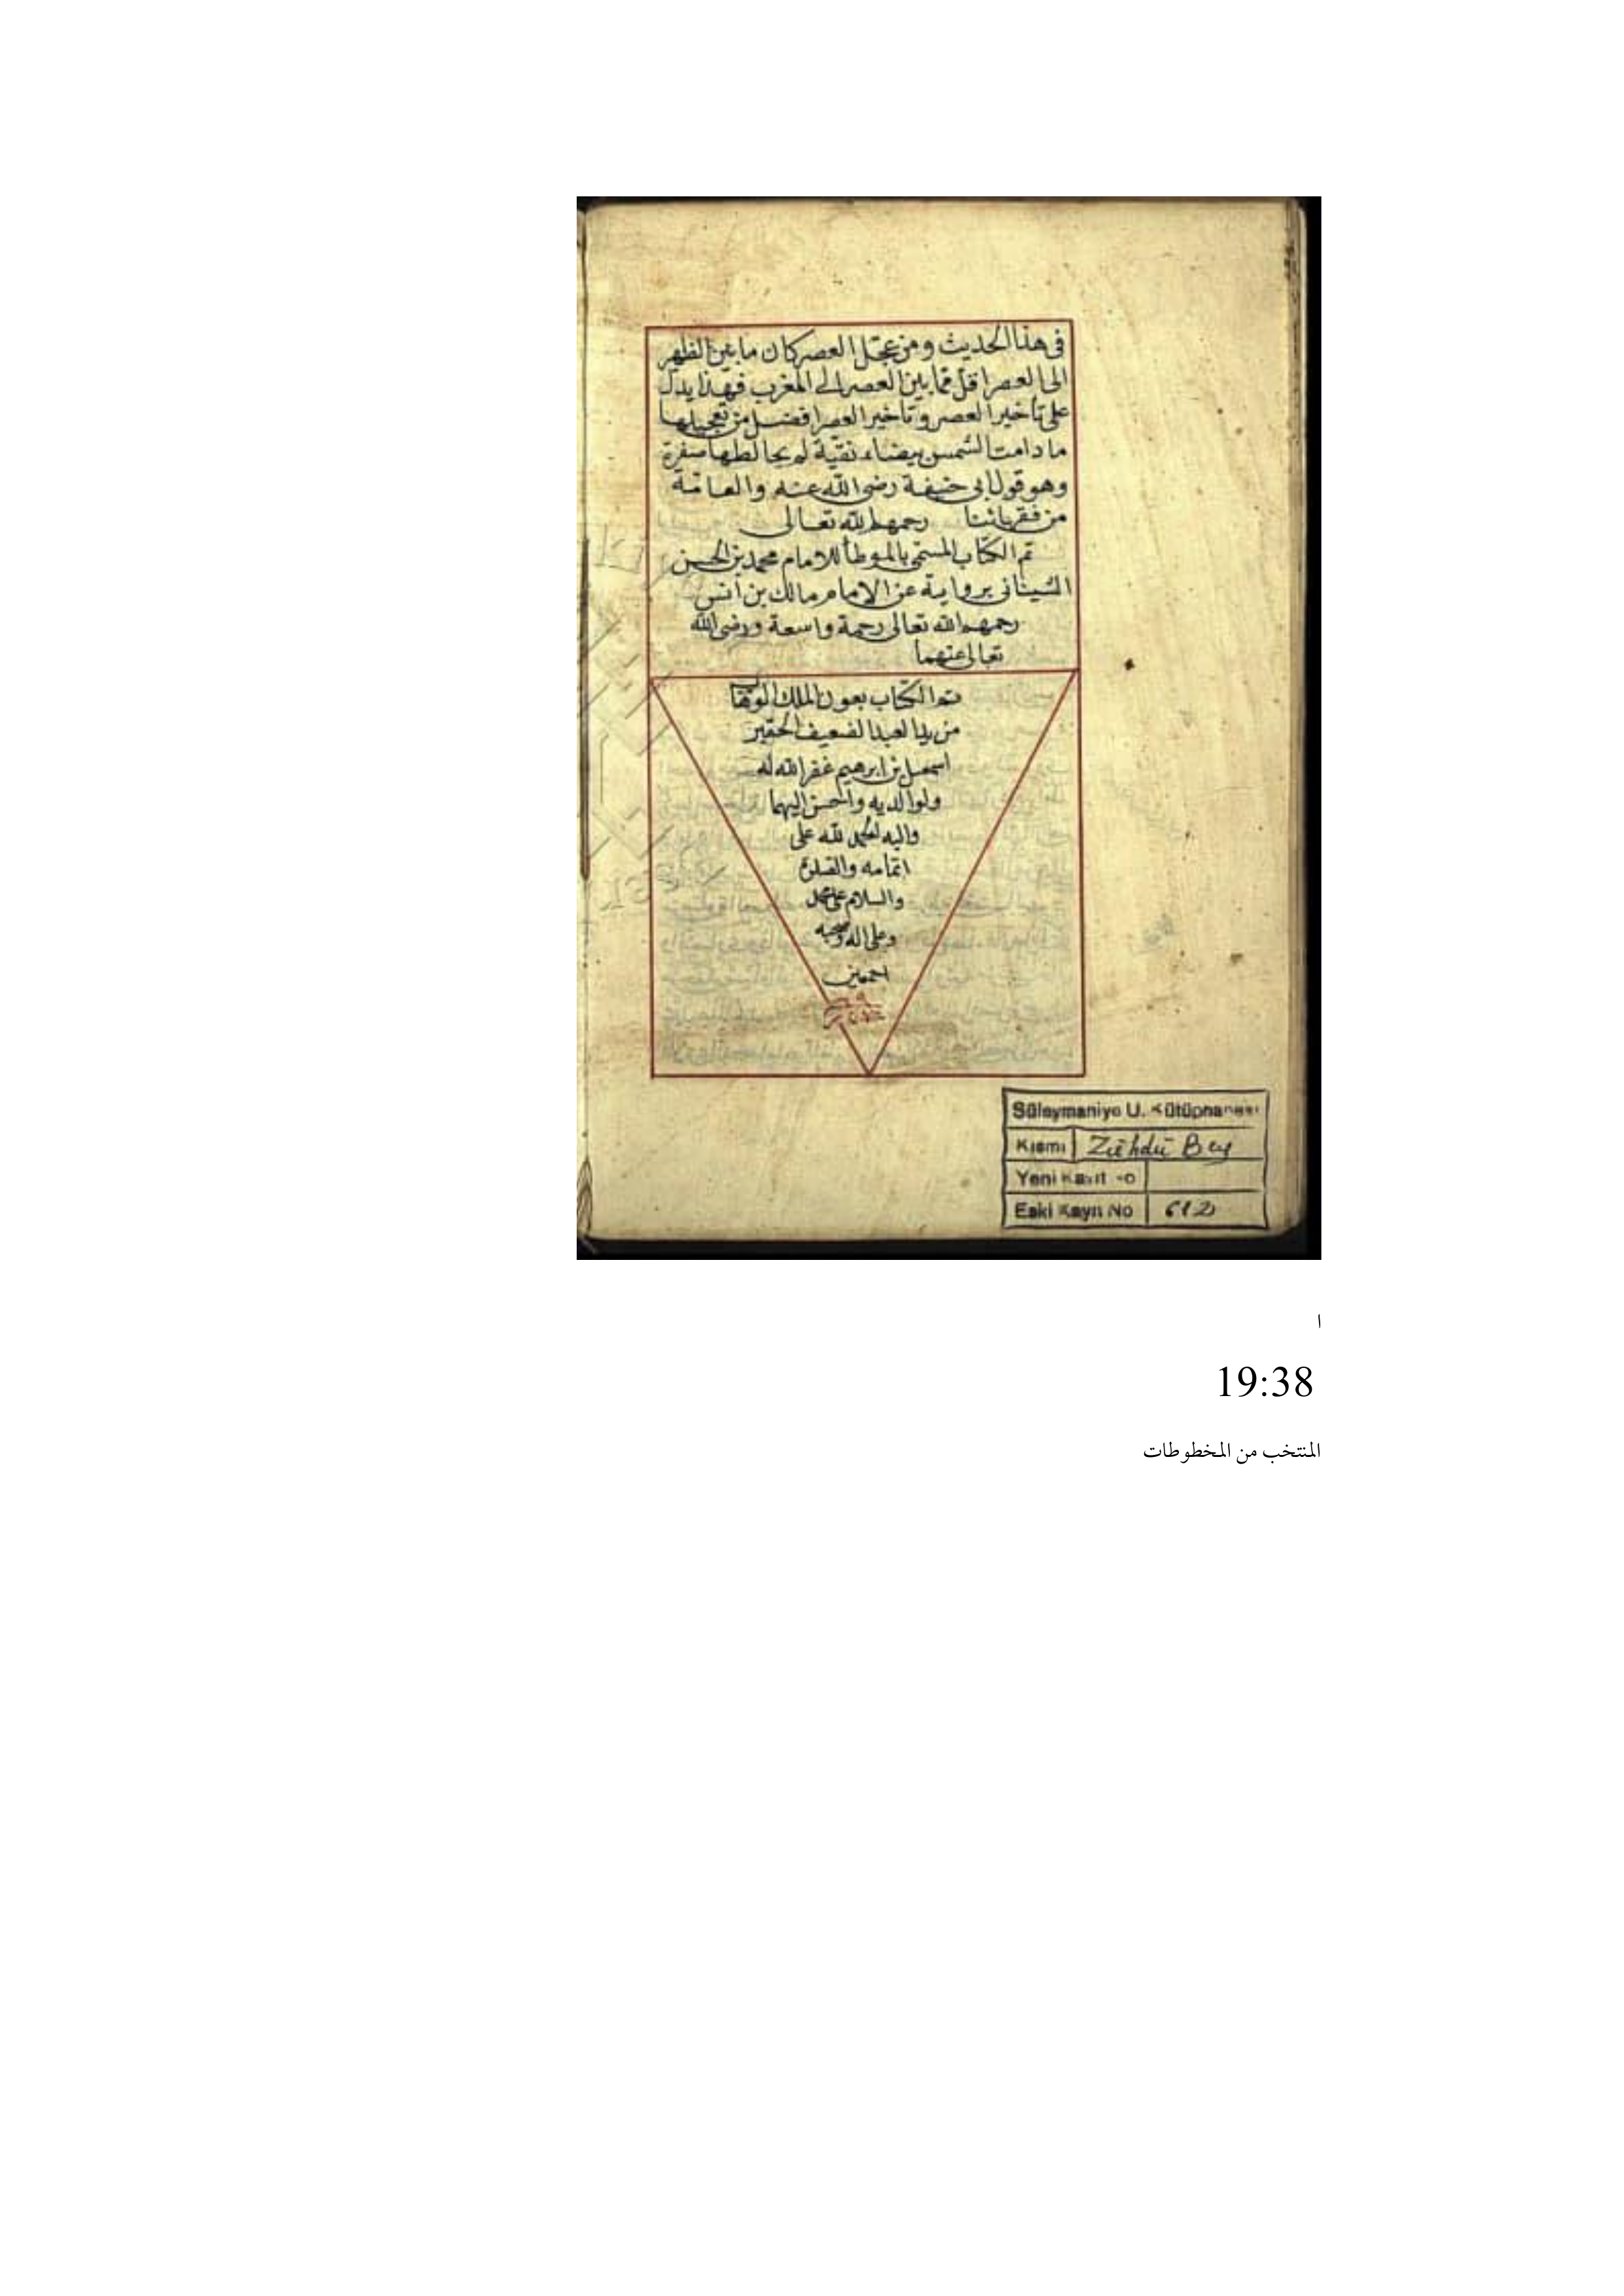 في هذا الحديث ومن عجّل العصر كان ما بين الظهر
الى العصر اقلّ ممّا بين العصر الى المغرب فهذا يدلّ
على تأخير العصر وتأخير العصر افضل من تعجيلها
ما دامت الشمس بيضاء نقيّة لم يخالطها صفرة
وهو قول ابي حنيفة رضى الله عنه والعامّة
من فقهائنا رحمهم الله تعالى
تم الكتاب المسمّى بالموطأ للامام محمد بن الحسن
الشيباني برواية عن الامام مالك بن أنس
رحمهم الله تعالى رحمة واسعة ورضى الله
تعالى عنهما
تم الكتاب بعون الملك الوهّاب
من يد العبد الضعيف الحقير
اسمعيل بن ابرهيم غفر الله له
ولوالديه واحسن اليهما
واليه الحمد لله على
اتمامه والصلوة
والسلام على محمد
وعلى اله وصحبه
اجمعين
Süleymaniye U. Kütüphanesi
Kısmı Zühdü Bey
Yeni Kayıt No
Eski Kayıt No 612
ا
19:38
المنتخب من المخطوطات